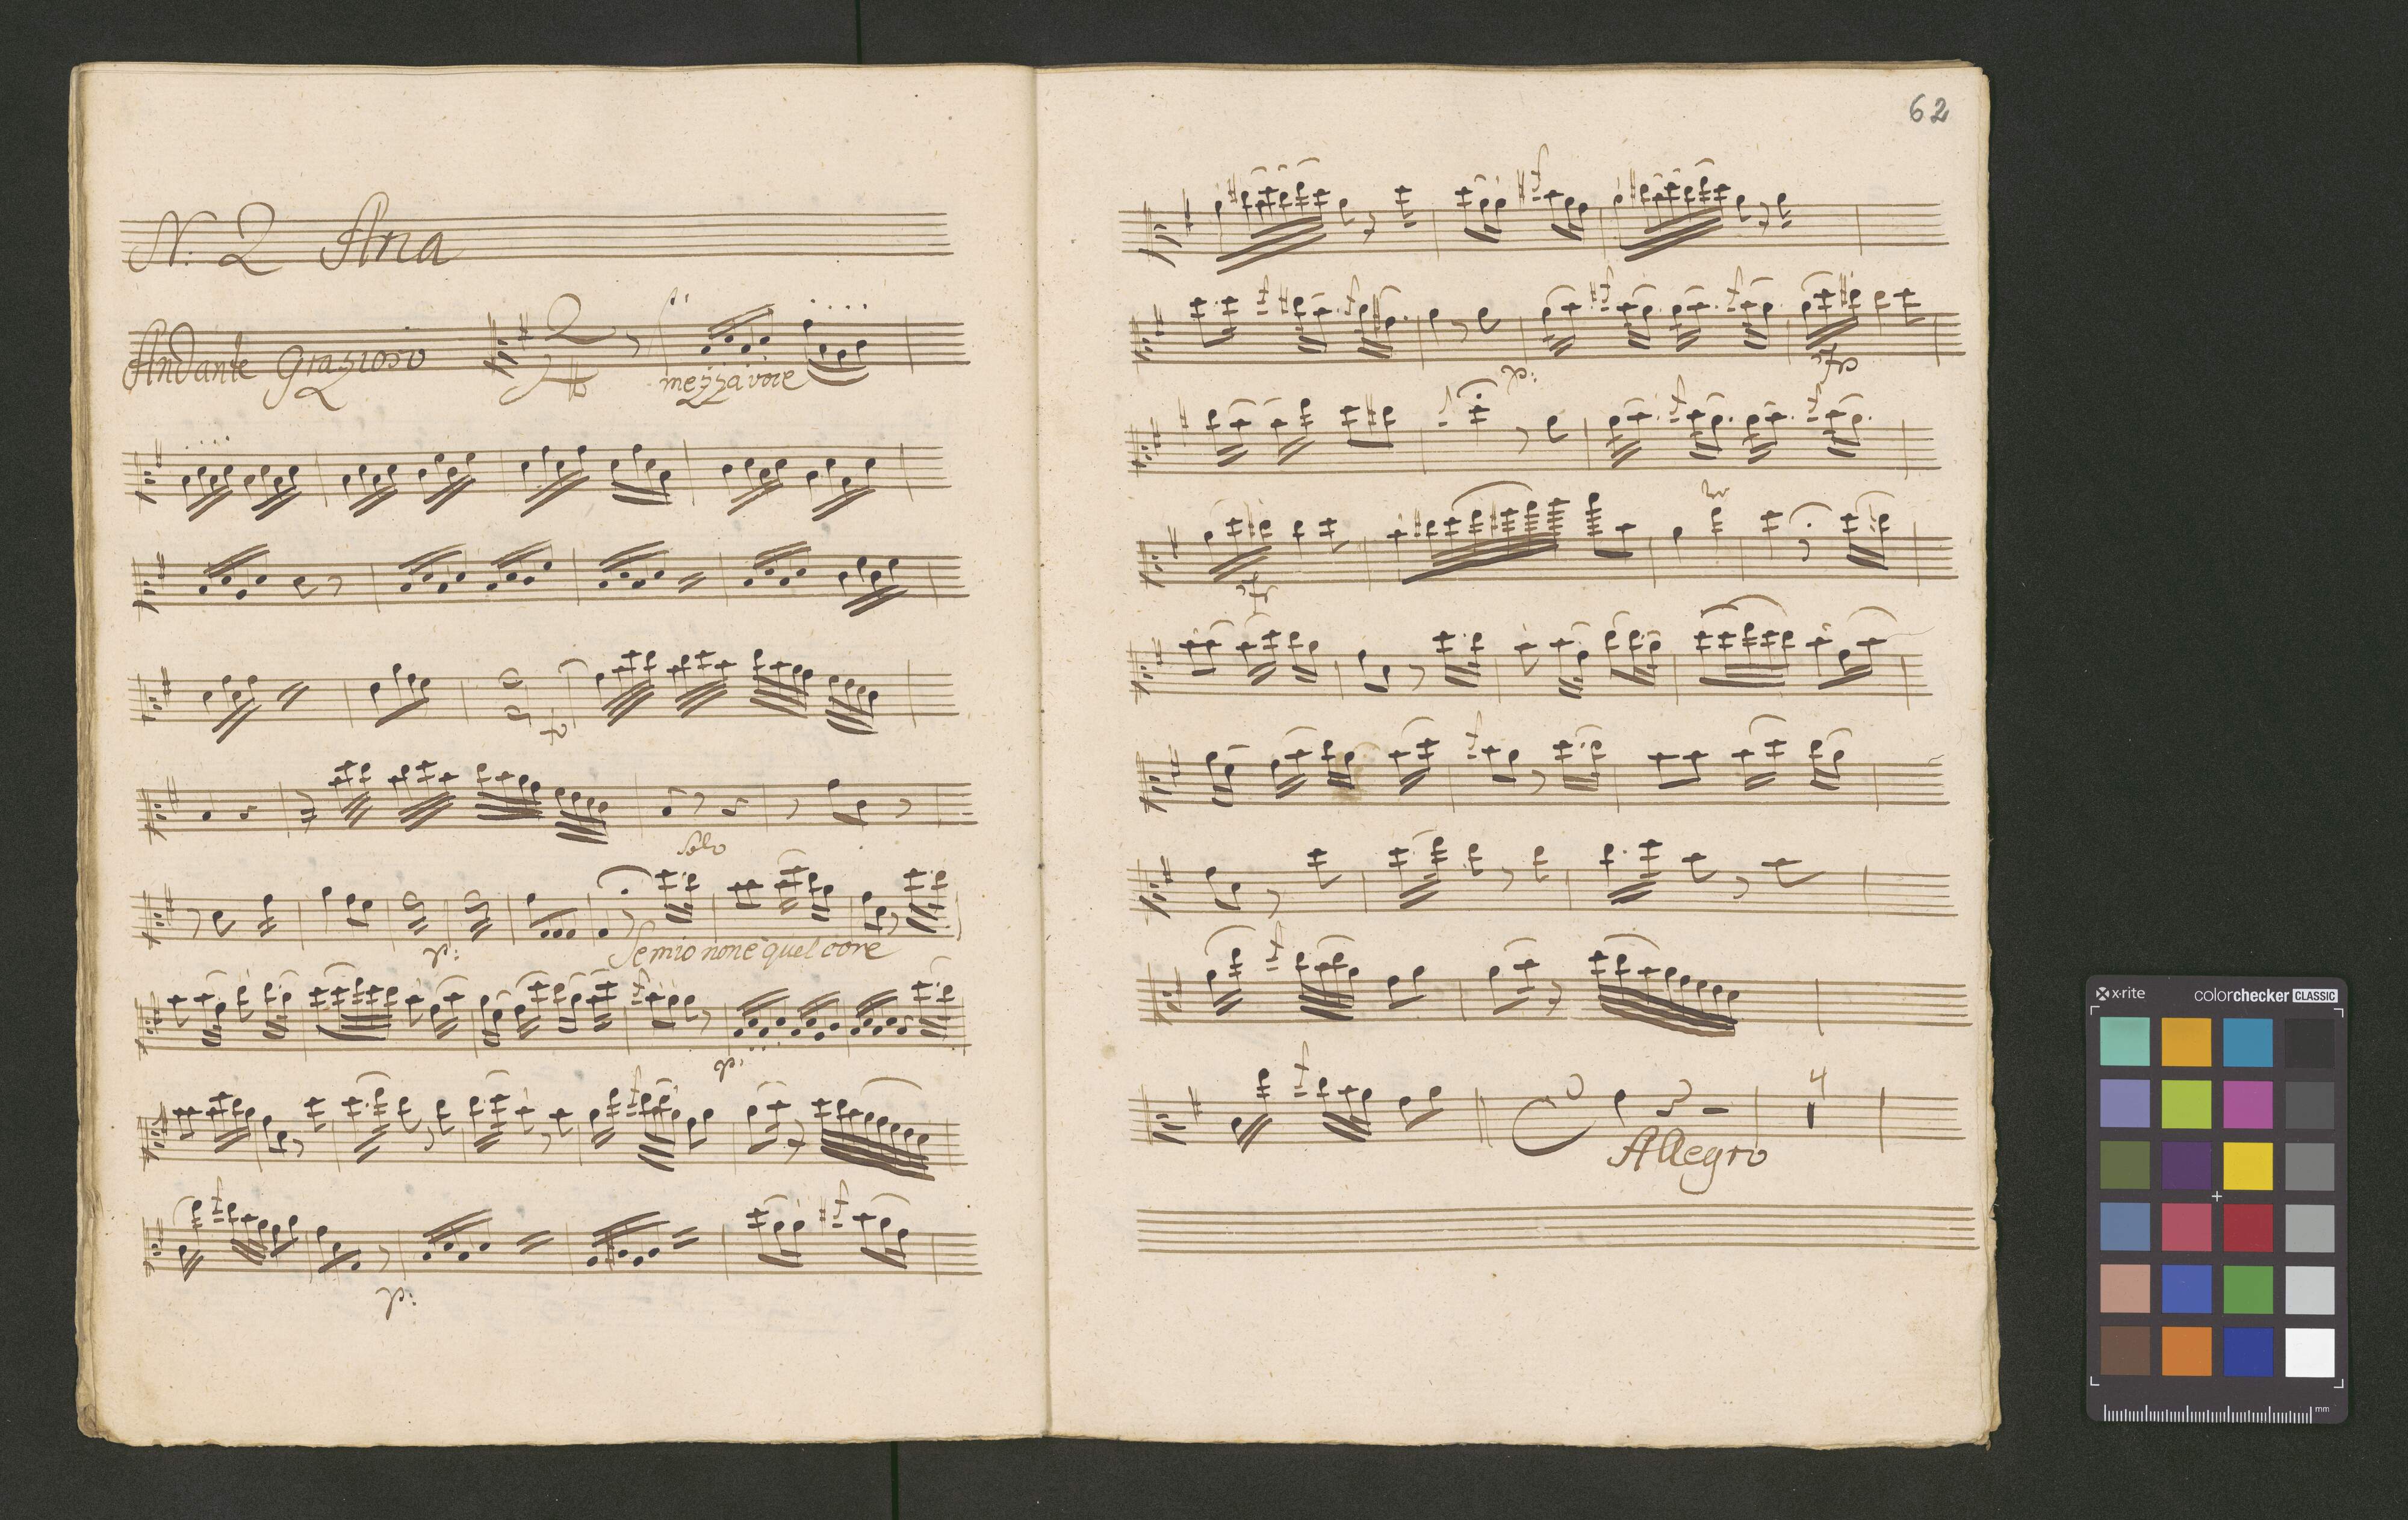 N. 2 Aria
Andante Grazioso
2
4
mezza voce
f
Solo
p:
Se mio non è quel core
p:
p:
62
p:
fp
tr
Allegro
4
x-rite colorchecker CLASSIC
mm